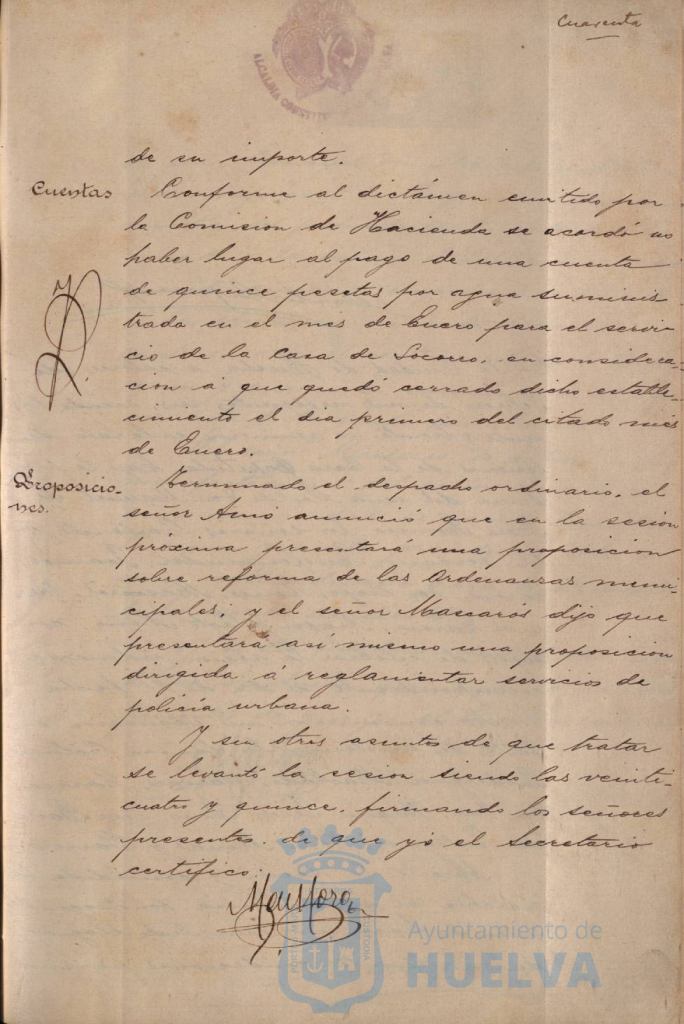 Cuarenta
ALCALDIA CONSTIT
de su importe.
Cuentas
Conforme al dictámen emitido por
la Comision de Hacienda se acordó no
haber lugar al pago de una cuenta
de quince pesetas por agua suminis
trada en el mes de Enero para el servi-
cio de la Casa de Socorro, en considera-
cion á que quedó cerrado dicho estable-
cimiento el dia primero del citado mes
de Enero.
Proposicio-
nes.
Terminado el despacho ordinario, el
señor Amó anunció que en la sesion
próxima presentará una proposicion
sobre reforma de las Ordenanzas muni-
cipales; y el señor Mascarós dijo que
presentará asi mismo una proposicion
dirigida á reglamentar servicios de
policía urbana.
Y sin otros asuntos de que tratar
se levantó la sesion siendo las veinti-
cuatro y quince, firmando los señores
presentes, de que yó el Secretario
certifico.
Ayuntamiento de
HUELVA